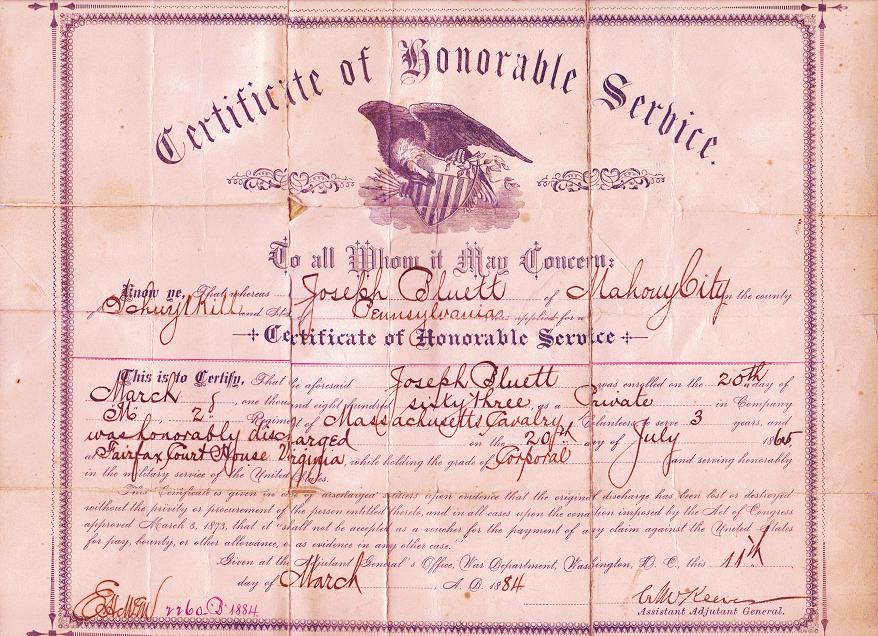 Certificate of Honorable Service.
To all Whom it May Concern:
Know ye, That whereas Joseph Bluett of Mahony City in the county
of Schuylkill and State of Pennsylvania has applied for a
Certificate of Honorable Service
This is to Certify, That the aforesaid Joseph Bluett was enrolled on the 20th day of
March, one thousand eight hundred sixty three, as a Private in Company
M, 2d Regiment of Massachusetts Cavalry Volunteers to serve 3 years, and
was honorably discharged on the 20th day of July 1865
at Fairfax Court House Virginia, while holding the grade of Corporal and serving honorably
in the military service of the United States.
This Certificate is given in case of discharged soldiers upon evidence that the original discharge has been lost or destroyed
without the privity or procurement of the person entitled thereto, and in all cases upon the condition imposed by the Act of Congress
approved March 3, 1873, that it "shall not be accepted as a voucher for the payment of any claim against the United States
for pay, bounty, or other allowance, or as evidence in any other case."
Given at the Adjutant General's Office, War Department, Washington, D. C., this 11th
day of March A. D. 1884
2260 D 1884
C McKeever
Assistant Adjutant General.